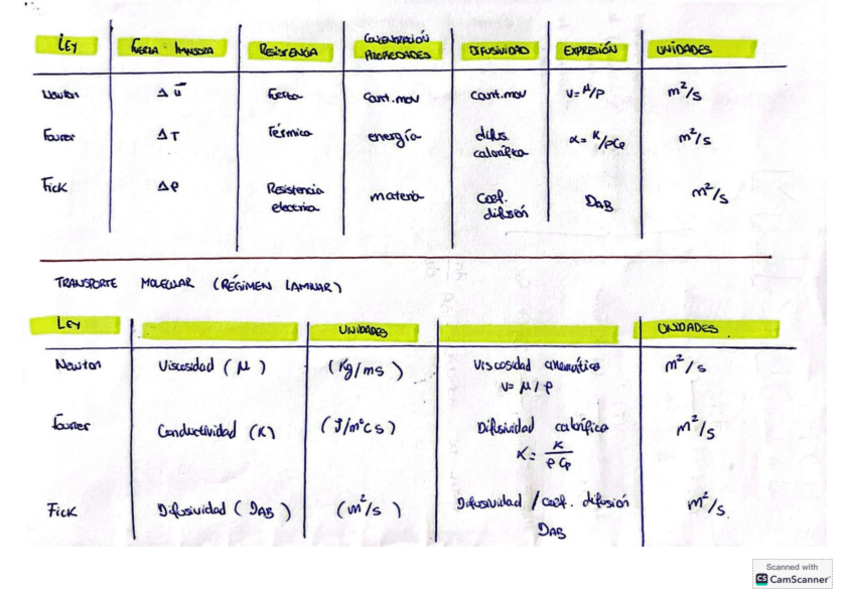 LEY FUERZA IMPULSORA RESISTENCIA CONCENTRACIÓN PROPIEDADES DIFUSIVIDAD EXPRESIÓN UNIDADES
Newton Δ ū Fuerza cant.mov cant.mov ν=μ/ρ m²/s
Fourier ΔT Térmica energía difus. calorífica α= K/ρCp m²/s
Fick Δρ Resistencia eléctrica materia Coef. difusión DAB m²/s
TRANSPORTE MOLECULAR (RÉGIMEN LAMINAR)
LEY UNIDADES UNIDADES
Newton Viscosidad (μ) (Kg/ms) Viscosidad cinemática m²/s
ν= μ/ρ
Fourier Conductividad (K) (J/m°C s) Difusividad calorífica m²/s
α= K/ρCp
Fick Difusividad (DAB) (m²/s) Difusividad / coef. difusión m²/s.
DAB
Scanned with
CS CamScanner